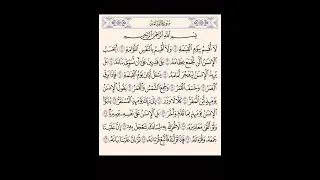 بِسْمِ ٱللَّهِ ٱلرَّحْمَٰنِ ٱلرَّحِيمِ
لَآ أُقْسِمُ بِيَوْمِ ٱلْقِيَٰمَةِ ۝ وَلَآ أُقْسِمُ بِٱلنَّفْسِ ٱللَّوَّامَةِ ۝ أَيَحْسَبُ
ٱلْإِنسَٰنُ أَلَّن نَّجْمَعَ عِظَامَهُۥ ۝ بَلَىٰ قَٰدِرِينَ عَلَىٰٓ أَن نُّسَوِّىَ بَنَانَهُۥ ۝ بَلْ
يُرِيدُ ٱلْإِنسَٰنُ لِيَفْجُرَ أَمَامَهُۥ ۝ يَسْـَٔلُ أَيَّانَ يَوْمُ ٱلْقِيَٰمَةِ ۝ فَإِذَا بَرِقَ
ٱلْبَصَرُ ۝ وَخَسَفَ ٱلْقَمَرُ ۝ وَجُمِعَ ٱلشَّمْسُ وَٱلْقَمَرُ ۝ يَقُولُ ٱلْإِنسَٰنُ
يَوْمَئِذٍ أَيْنَ ٱلْمَفَرُّ ۝ كَلَّا لَا وَزَرَ ۝ إِلَىٰ رَبِّكَ يَوْمَئِذٍ ٱلْمُسْتَقَرُّ ۝ يُنَبَّؤُا۟ ٱلْإِنسَٰنُ
يَوْمَئِذٍۭ بِمَا قَدَّمَ وَأَخَّرَ ۝ بَلِ ٱلْإِنسَٰنُ عَلَىٰ نَفْسِهِۦ بَصِيرَةٌ ۝
وَلَوْ أَلْقَىٰ مَعَاذِيرَهُۥ ۝ لَا تُحَرِّكْ بِهِۦ لِسَانَكَ لِتَعْجَلَ بِهِۦٓ ۝ إِنَّ عَلَيْنَا
جَمْعَهُۥ وَقُرْءَانَهُۥ ۝ فَإِذَا قَرَأْنَٰهُ فَٱتَّبِعْ قُرْءَانَهُۥ ۝ ثُمَّ إِنَّ عَلَيْنَا بَيَانَهُۥ ۝